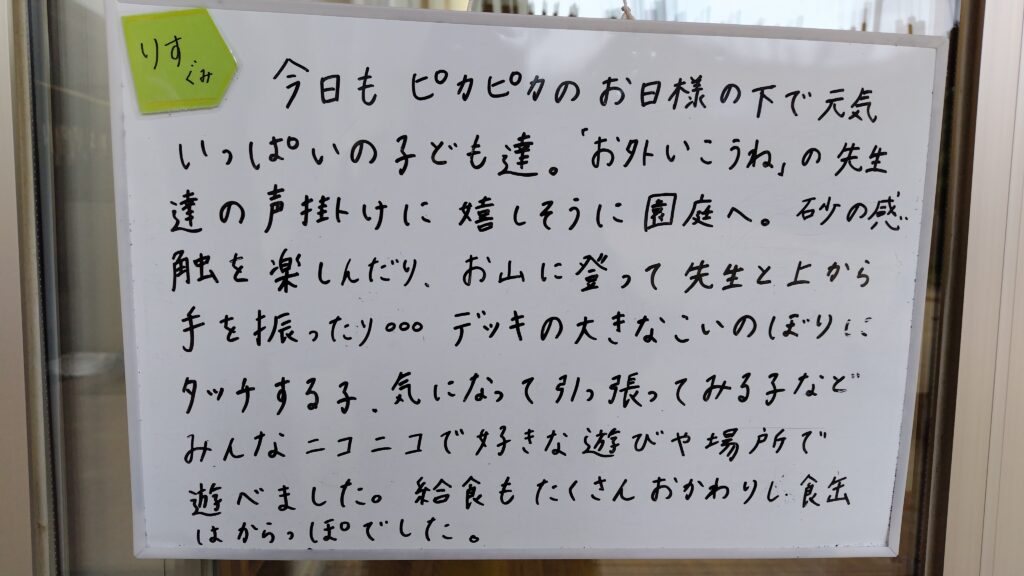 りす
ぐみ
今日も ピカピカの お日様の下で元気
いっぱいの子ども達。「お外いこうね」の先生
達の声掛けに 嬉しそうに 園庭へ。砂の感
触を楽しんだり、お山に登って先生と上から
手を振ったり○○○ デッキの大きなこいのぼりに
タッチする子、気になって引っ張ってみる子など
みんなニコニコで好きな遊びや場所で
遊べました。給食もたくさんおかわりし、食缶
はからっぽでした。